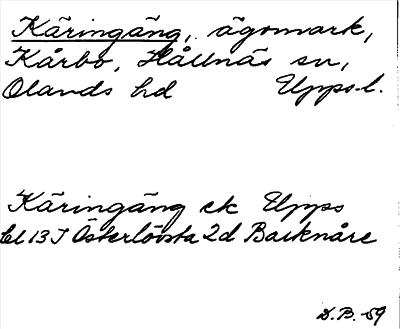 Käringäng, ägomark,
Kårbo, Hållnäs sn,
Olands hd Upps.l.
Käringäng ek Upps
bl 13 J Österlövsta 2d Barknåre
D.B. -59